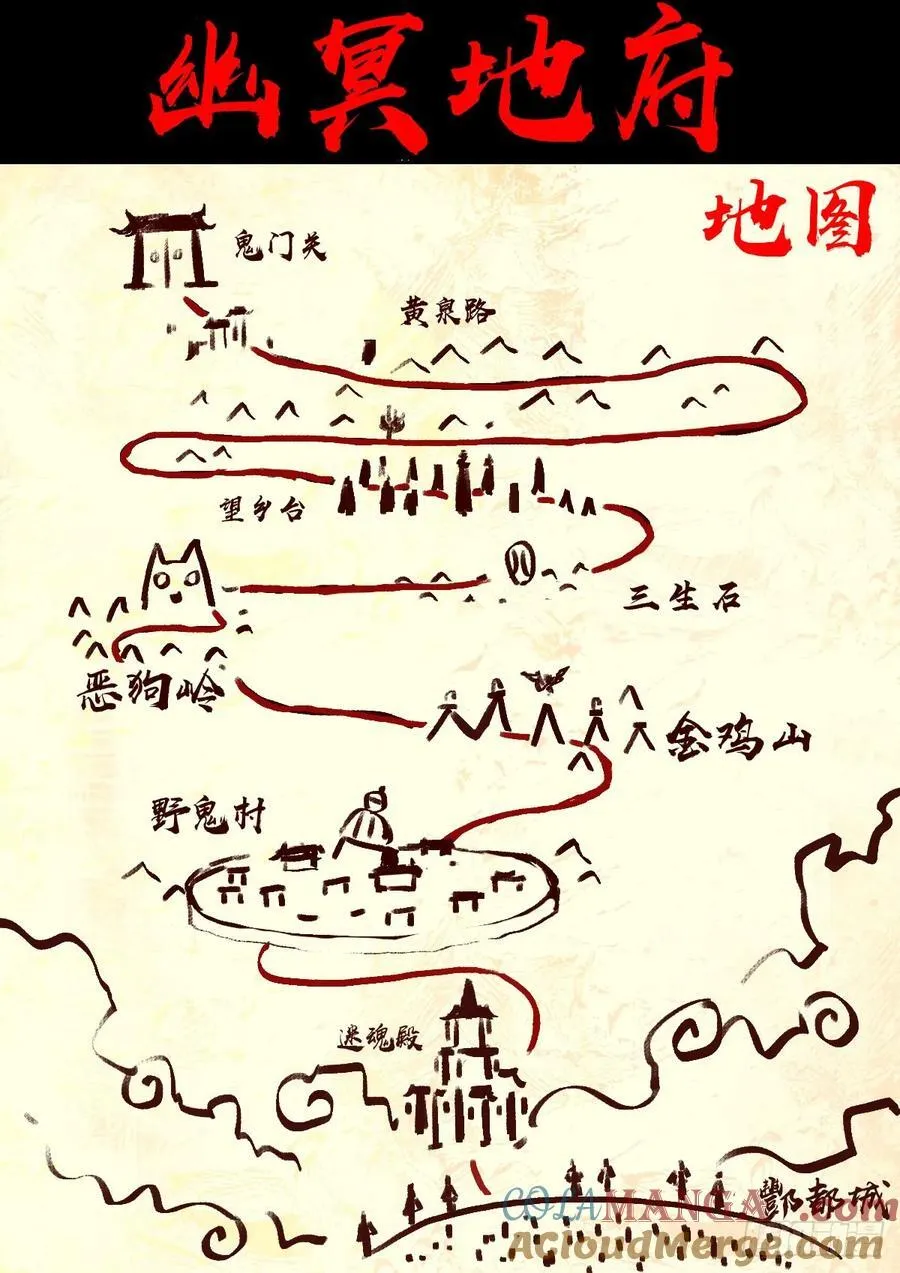 幽冥地府
地图
鬼门关
黄泉路
望乡台
三生石
恶狗岭
金鸡山
野鬼村
迷魂殿
酆都城
COLAMANGA.COM
ACloudMerge.com